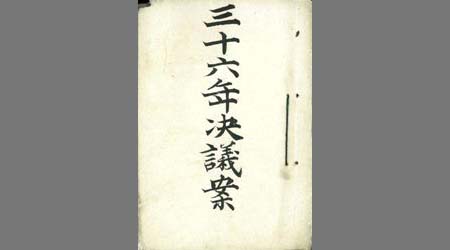 三十六年決議案